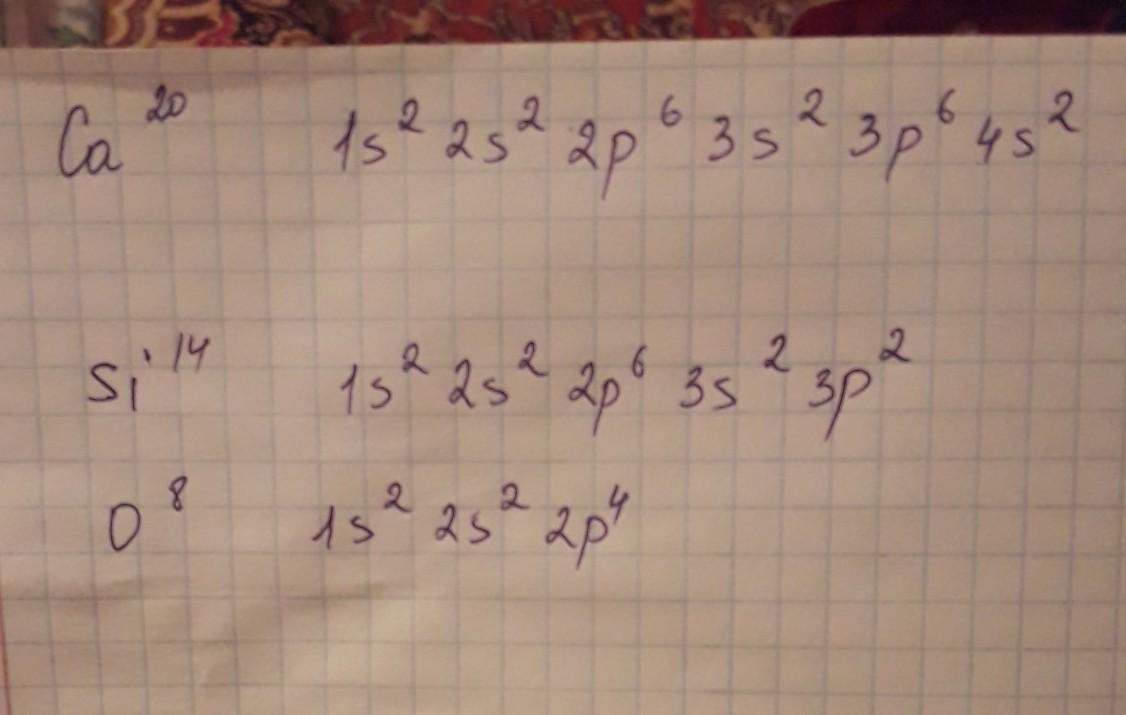 Ca²⁰ 1s² 2s² 2p⁶ 3s² 3p⁶ 4s²
Si¹⁴ 1s² 2s² 2p⁶ 3s² 3p²
O⁸ 1s² 2s² 2p⁴